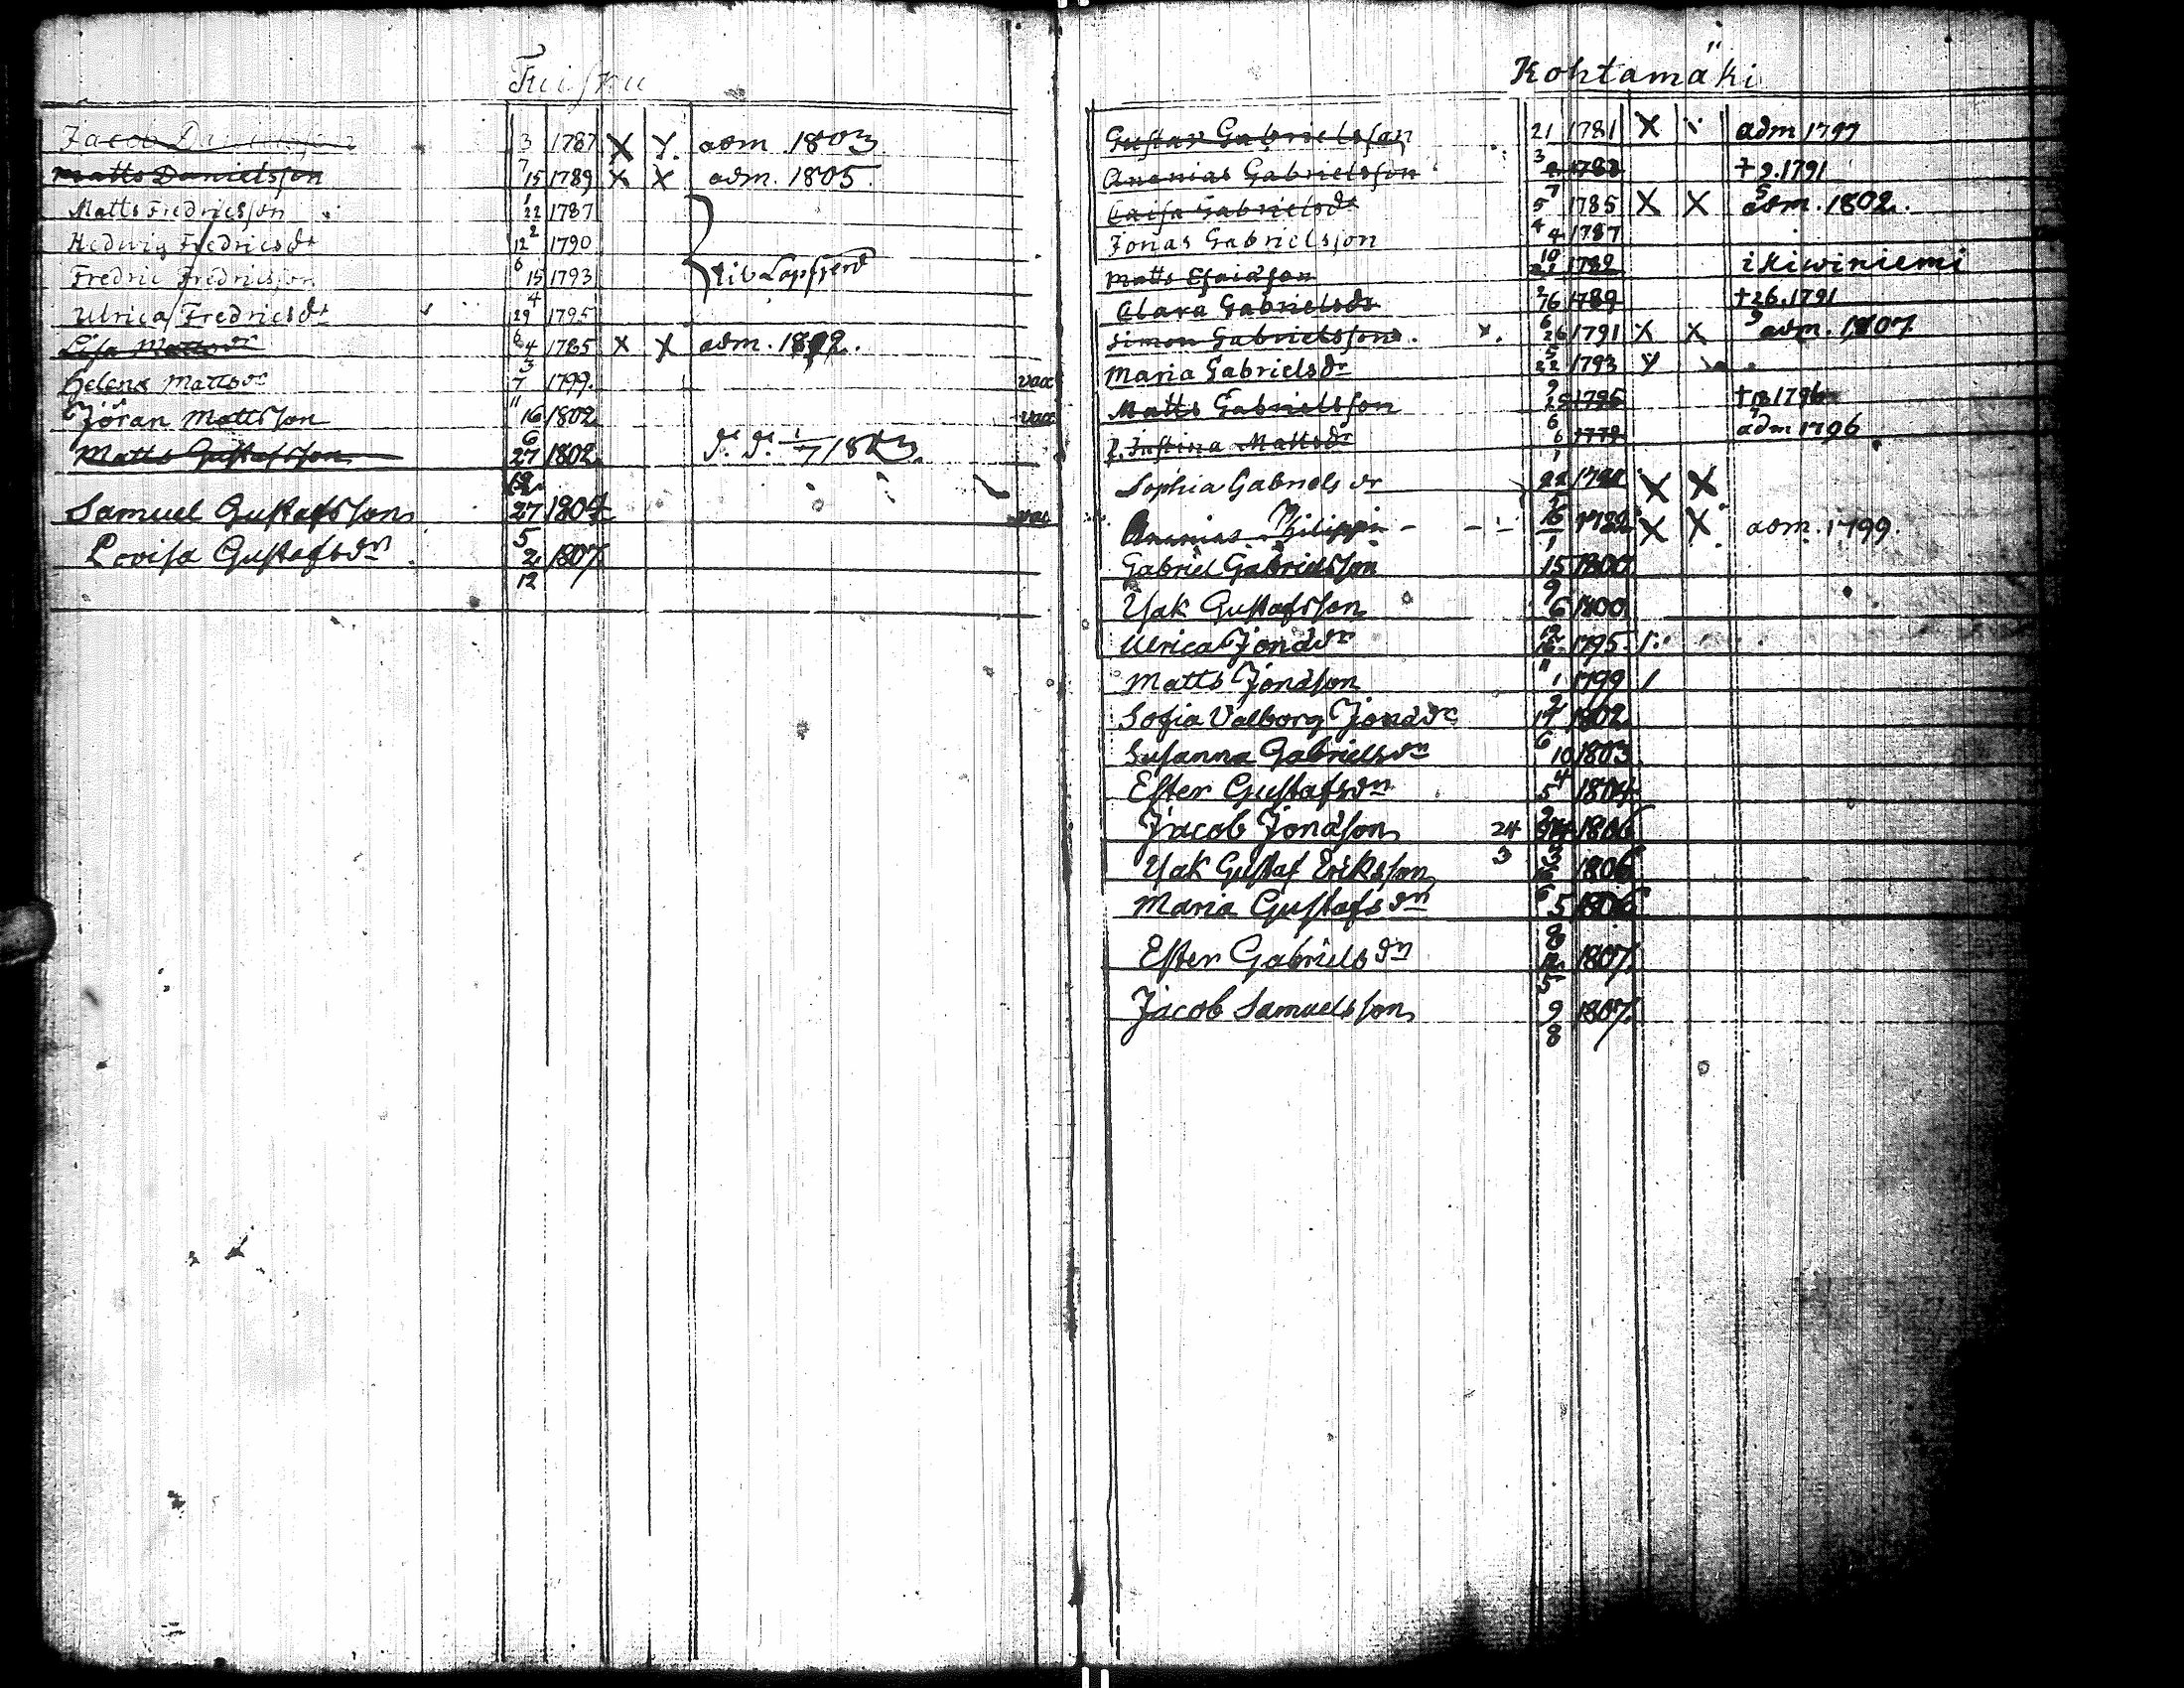 Jacob Danielsson 3 1787 X X adm. 1803
7
Matts Danielsson 15 1789 X X adm. 1805.
1
Matts Fredricsson 22 1787
2
Hedwig Fredricsdr 12 1790
6
Fredric Fredricsson 15 1793 til Lapfjerd
4
Ulrica Fredricsdr 29 1795
6
Lisa Mattsdr 4 1785 X X adm. 1802.
3
Helena Mattsdr 7 1799. vac
11
Jöran Mattsson 16 1802. vac
6
Matts Gustafsson 27 1802. d. d. 1/7 1803.
12
Samuel Gustafsson 27 1804 vac
5
Lovisa Gustafsdn 2 1807.
12
Kohtamäki
Gustav Gabrielsson 21 1781 X adm 1797
3
Ananias Gabrielsson 1783 † 9. 1791
7 5
Caisa Gabrielsdr 5 1785 X X adm. 1802.
4
Jonas Gabrielsson 4 1787
10
Matts Esaiæson 21 1782 i Kiwiniemi
2
Clara Gabrielsdr 26 1789 † 26. 1791
6 9
Simon Gabrielsson X. 26 1791 X X adm. 1807
5
Maria Gabrielsdr 22 1793
9
Matts Gabrielsson 25 1795 † 18 1796
6
P. Justina Mattsdr 6 1779 adm 1796
1
Sophia Gabrielsdr 22 1798 X X
Ananias Philippi 16 1782 X X adm. 1799.
1
Gabriel Gabrielsson 15 1800
9
Isak Gustafsson 6 1800
12
Ulrica Jonædr 16 1795
11
Matts Jonæson 1 1799
2
Sofia Valborg Jonædr 17 1802
6
Susanna Gabrielsdn 10 1803
4
Ester Gustafsdn 5 1804
9
Jacob Jonæson 24 1806
3 3
Isak Gustaf Eriksson 16 1806
6
Maria Gustafsdn 5 1806
8
Ester Gabrielsdn 12 1807.
5
Jacob Samuelsson 9 1807.
8